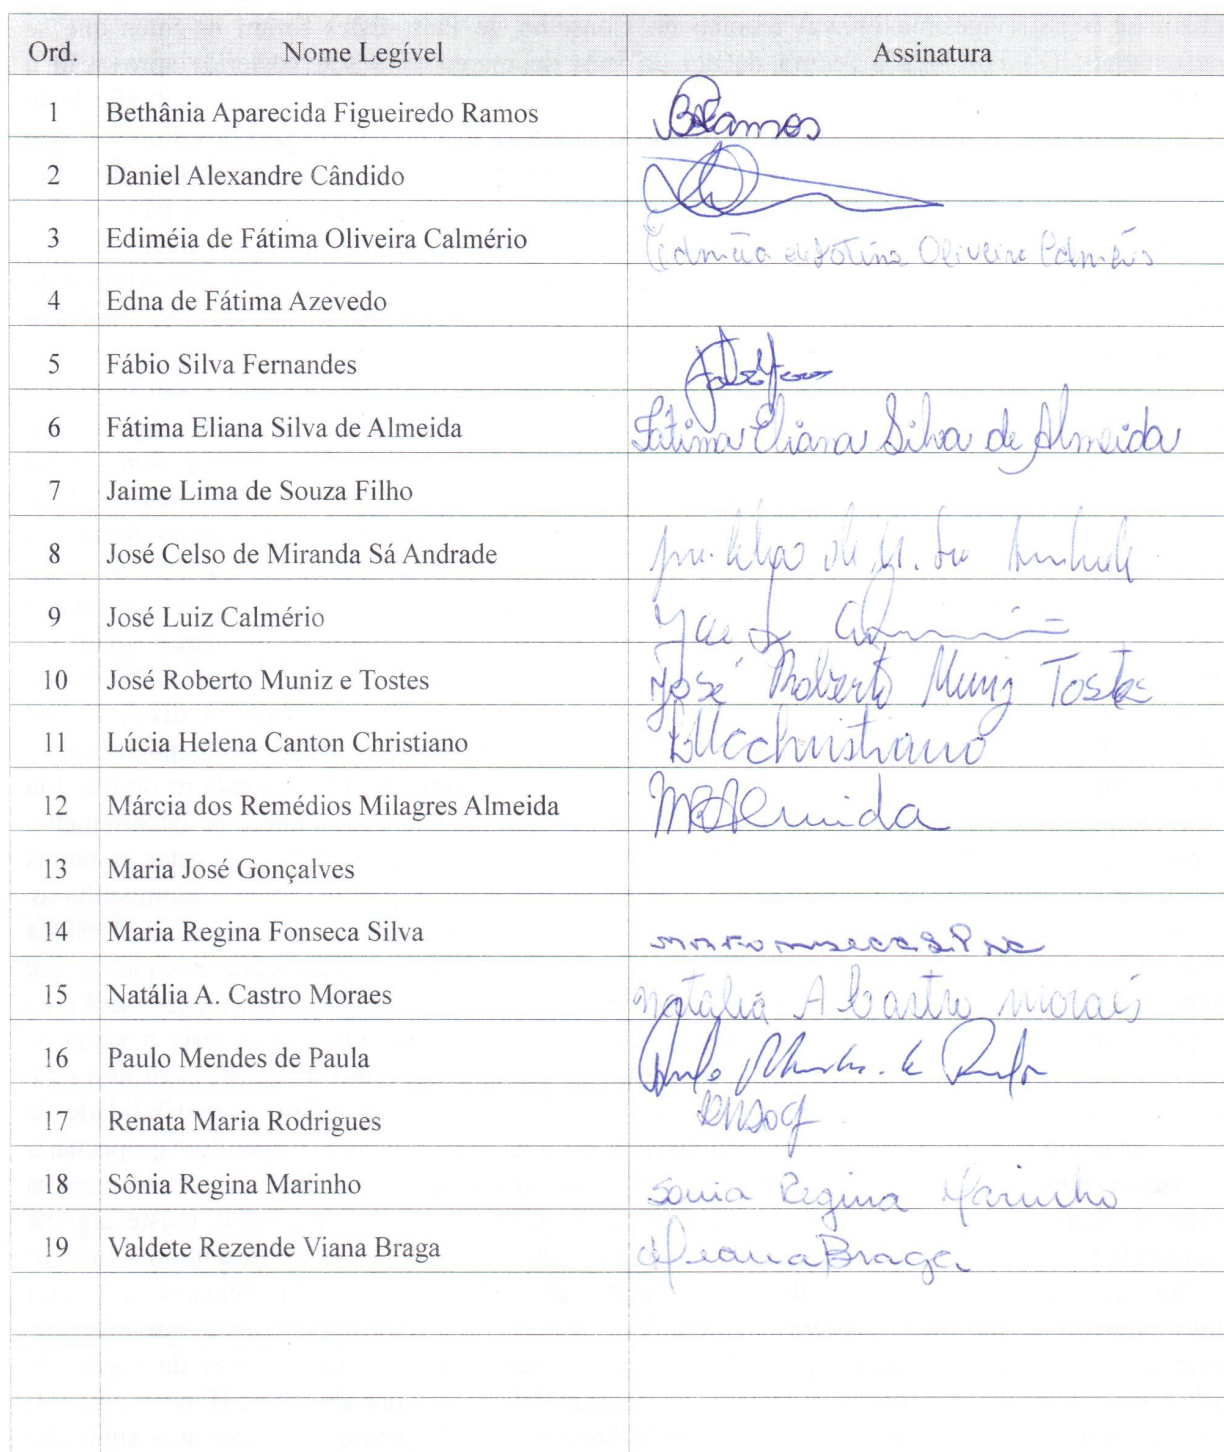 Ord. Nome Legível Assinatura
1 Bethânia Aparecida Figueiredo Ramos BFRamos
2 Daniel Alexandre Cândido
3 Ediméia de Fátima Oliveira Calmério Ediméia de Fátima Oliveira Calmério
4 Edna de Fátima Azevedo
5 Fábio Silva Fernandes
6 Fátima Eliana Silva de Almeida Fátima Eliana Silva de Almeida
7 Jaime Lima de Souza Filho
8 José Celso de Miranda Sá Andrade
9 José Luiz Calmério
10 José Roberto Muniz e Tostes José Roberto Muniz Tostes
11 Lúcia Helena Canton Christiano LHCchristiano
12 Márcia dos Remédios Milagres Almeida MRAlmeida
13 Maria José Gonçalves
14 Maria Regina Fonseca Silva
15 Natália A. Castro Moraes Natália A Castro Morais
16 Paulo Mendes de Paula Paulo Mendes de Paula
17 Renata Maria Rodrigues
18 Sônia Regina Marinho Sonia Regina Marinho
19 Valdete Rezende Viana Braga VianaBraga